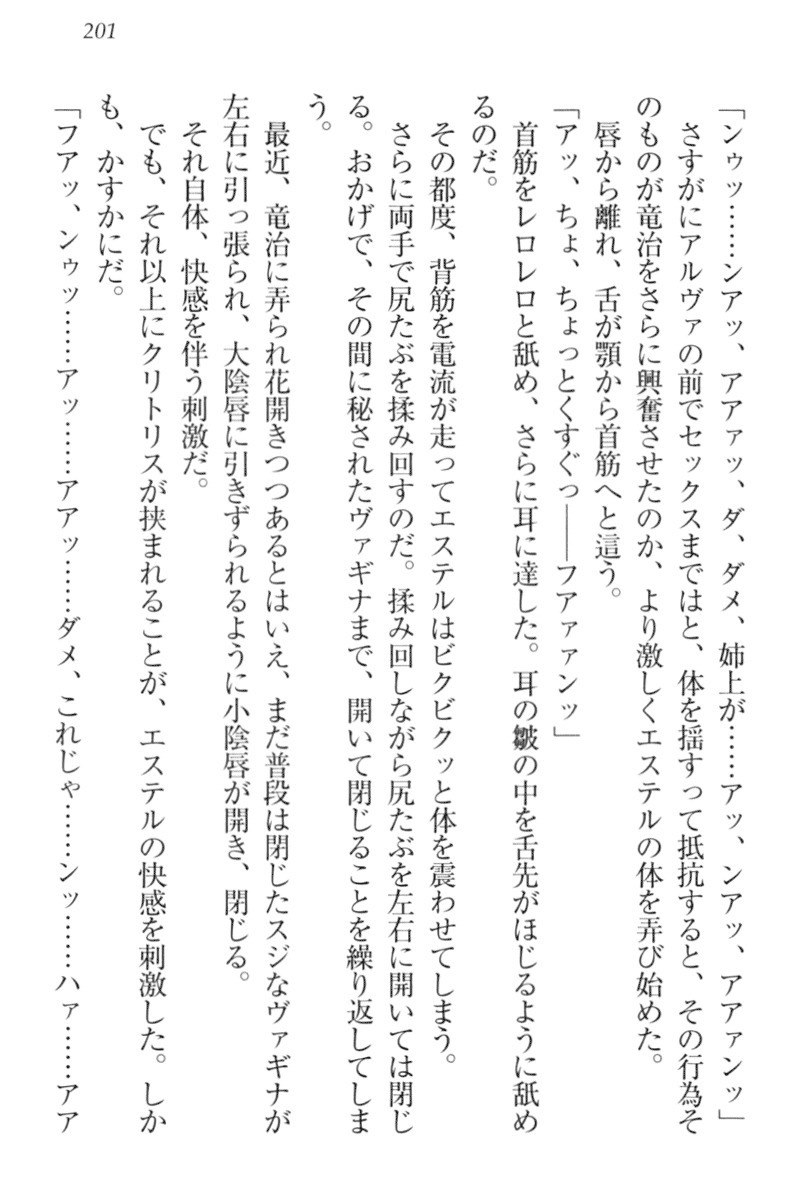 201
「ンゥッ……ンアッ、アアァッ、ダ、ダメ、姉上が……アッ、ンアッ、アアァンッ」
さすがにアルヴァの前でセックスまではと、体を揺すって抵抗すると、その行為そ
のものが竜治をさらに興奮させたのか、より激しくエステルの体を弄び始めた。
唇から離れ、舌が顎から首筋へと這う。
「アッ、ちょ、ちょっとくすぐっ――フアァァンッ」
首筋をレロレロと舐め、さらに耳に達した。耳の皺の中を舌先がほじるように舐め
るのだ。
その都度、背筋を電流が走ってエステルはビクビクッと体を震わせてしまう。
さらに両手で尻たぶを揉み回すのだ。揉み回しながら尻たぶを左右に開いては閉じ
る。おかげで、その間に秘されたヴァギナまで、開いて閉じることを繰り返してしま
う。
最近、竜治に弄られ花開きつつあるとはいえ、まだ普段は閉じたスジなヴァギナが
左右に引っ張られ、大陰唇に引きずられるように小陰唇が開き、閉じる。
それ自体、快感を伴う刺激だ。
でも、それ以上にクリトリスが挟まれることが、エステルの快感を刺激した。しか
も、かすかにだ。
「フアッ、ンゥッ……アッ……アアッ……ダメ、これじゃ……ンッ……ハァ……アア